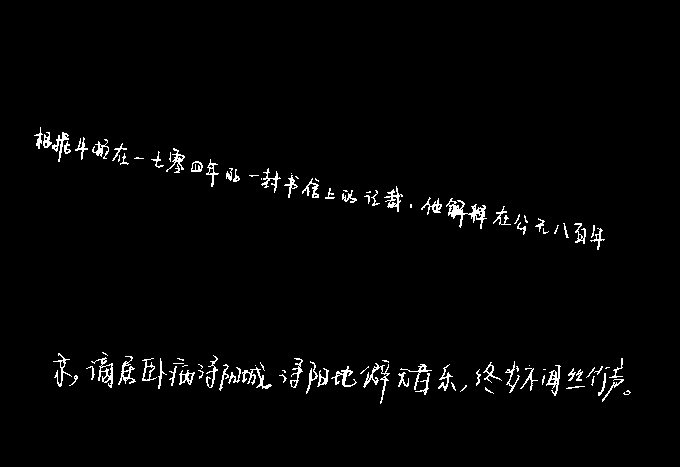 根据牛顿在一七零四年的一封书信上的记载，他解释在公元八百年
京，谪居卧病浔阳城。浔阳地僻无音乐，终岁不闻丝竹声。